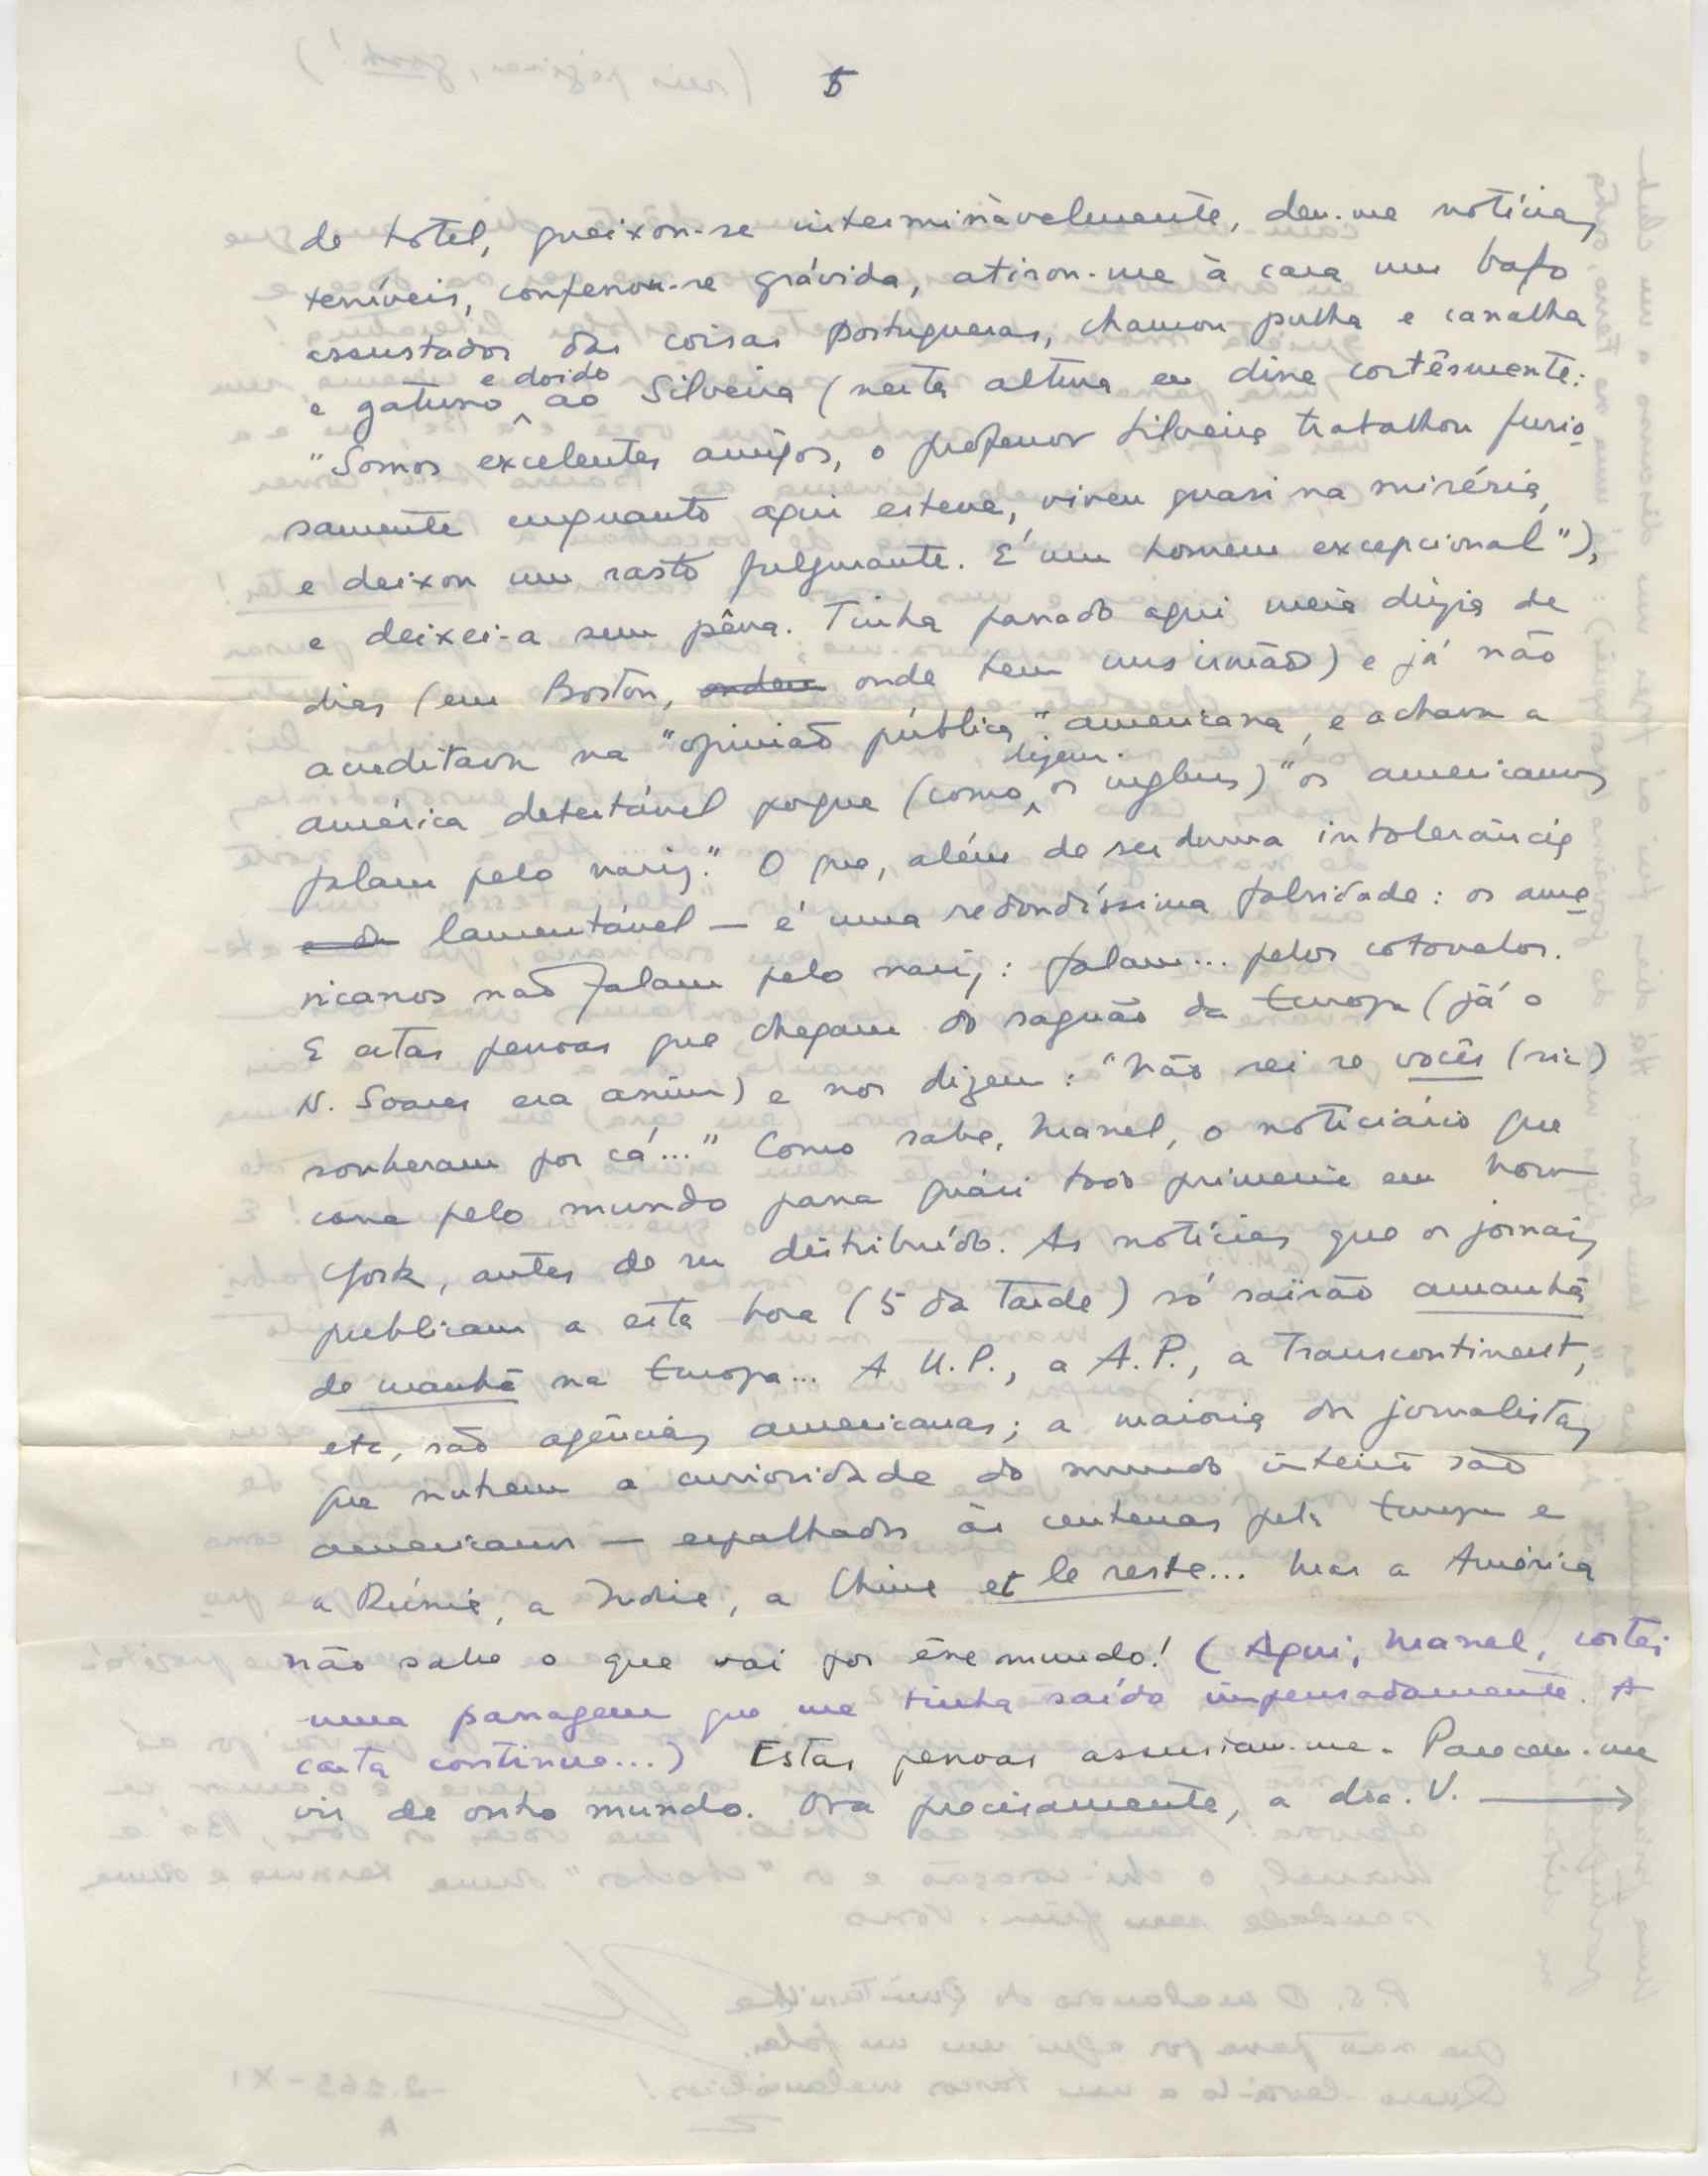 5
de hotel, queixou-se interminàvelmente, deu-me notícias
terríveis, confessou-se grávida, atirou-me à cara um bafo
assustador das coisas portuguesas, chamou pulha e canalha
e gatuno e doido ao Silveira (nesta altura eu disse cortêsmente:
"Somos excelentes amigos, o professor Silveira trabalhou furio-
samente enquanto aqui esteve, viveu quasi na miséria,
e deixou um rasto fulgurante. É um homem excepcional"),
e deixei-a sem pêna. Tinha passado aqui meia dúzia de
dias (em Boston, onde tem uns irmãos) e já não
acreditava na "opinião pública" americana, e achava a
américa detestável porque (como dizem os ingleses) "os americanos
falam pelo nariz." O que, além de ser duma intolerância
lamentável — é uma redondíssima falsidade: os ame-
ricanos não falam pelo nariz: falam... pelos cotovelos.
E estas pessoas que chegam do saguão da Europa (já o
N. Soares era assim) e nos dizem: "Não sei se vocês (sic)
souberam por cá..." Como sabe, Manel, o noticiário que
corre pelo mundo passa quási todo primeiro em Nova
York, antes de ser distribuído. As notícias que os jornais
publicam a esta hora (5 da tarde) só sairão amanhã
de manhã na Europa... A U.P., a A.P., a Transcontinent,
etc, são agências americanas; a maioria dos jornalistas
que nutrem a curiosidade do mundo inteiro são
americanos — espalhados às centenas pela Europa e
a Rússia, a India, a China et le reste... Mas a América
não sabe o que vai por êsse mundo! (Aqui, Manel, cortei
uma passagem que me tinha saído impensadamente. A
carta continua...) Estas pessoas assustam-me. Parecem-me
vir de outro mundo. Ora precisamente, a dra. V. →